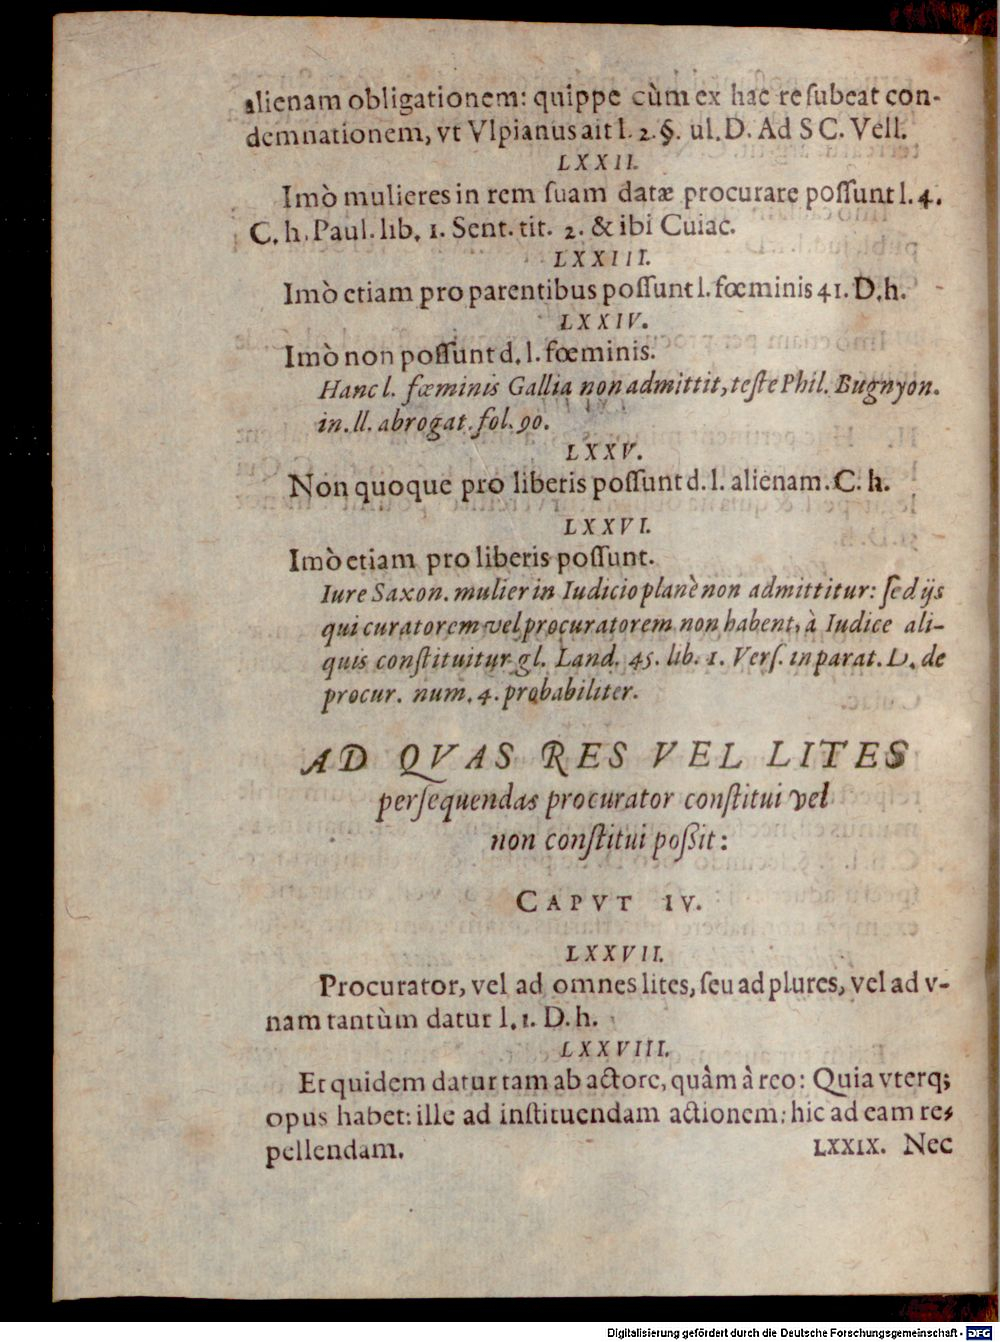 alienam obligationem: quippe cùm ex hac re ſubeat con-
demnationem, vt Vlpianus ait l. 2. §. ul. D. Ad SC. Vell.
LXXII.
Imò mulieres in rem ſuam datæ procurare poſſunt l. 4.
C. h. Paul. lib. 1. Sent. tit. 2. & ibi Cuiac.
LXXIII.
Imò etiam pro parentibus poſſunt l. fœminis 41. D. h.
LXXIV.
Imò non poſſunt d. l. fœminis.
Hanc l. fœminis Gallia non admittit, teſte Phil. Bugnyon.
in. ll. abrogat. fol. 90.
LXXV.
Non quoque pro liberis poſſunt d. l. alienam. C. h.
LXXVI.
Imò etiam pro liberis poſſunt.
Iure Saxon. mulier in Iudicio planè non admittitur: ſed ijs
qui curatorem vel procuratorem non habent, à Iudice ali-
quis conſtituitur gl. Land. 45. lib. 1. Verſ. in parat. D. de
procur. num. 4. probabiliter.
AD QVAS RES VEL LITES
perſequendas procurator conſtitui vel
non conſtitui poßit:
CAPVT IV.
LXXVII.
Procurator, vel ad omnes lites, ſeu ad plures, vel ad v-
nam tantùm datur l. 1. D. h.
LXXVIII.
Et quidem datur tam ab actore, quàm à reo: Quia vterq;
opus habet: ille ad inſtituendam actionem: hic ad eam re-
pellendam.
LXXIX. Nec
Digitalisierung gefördert durch die Deutsche Forschungsgemeinschaft - DFG